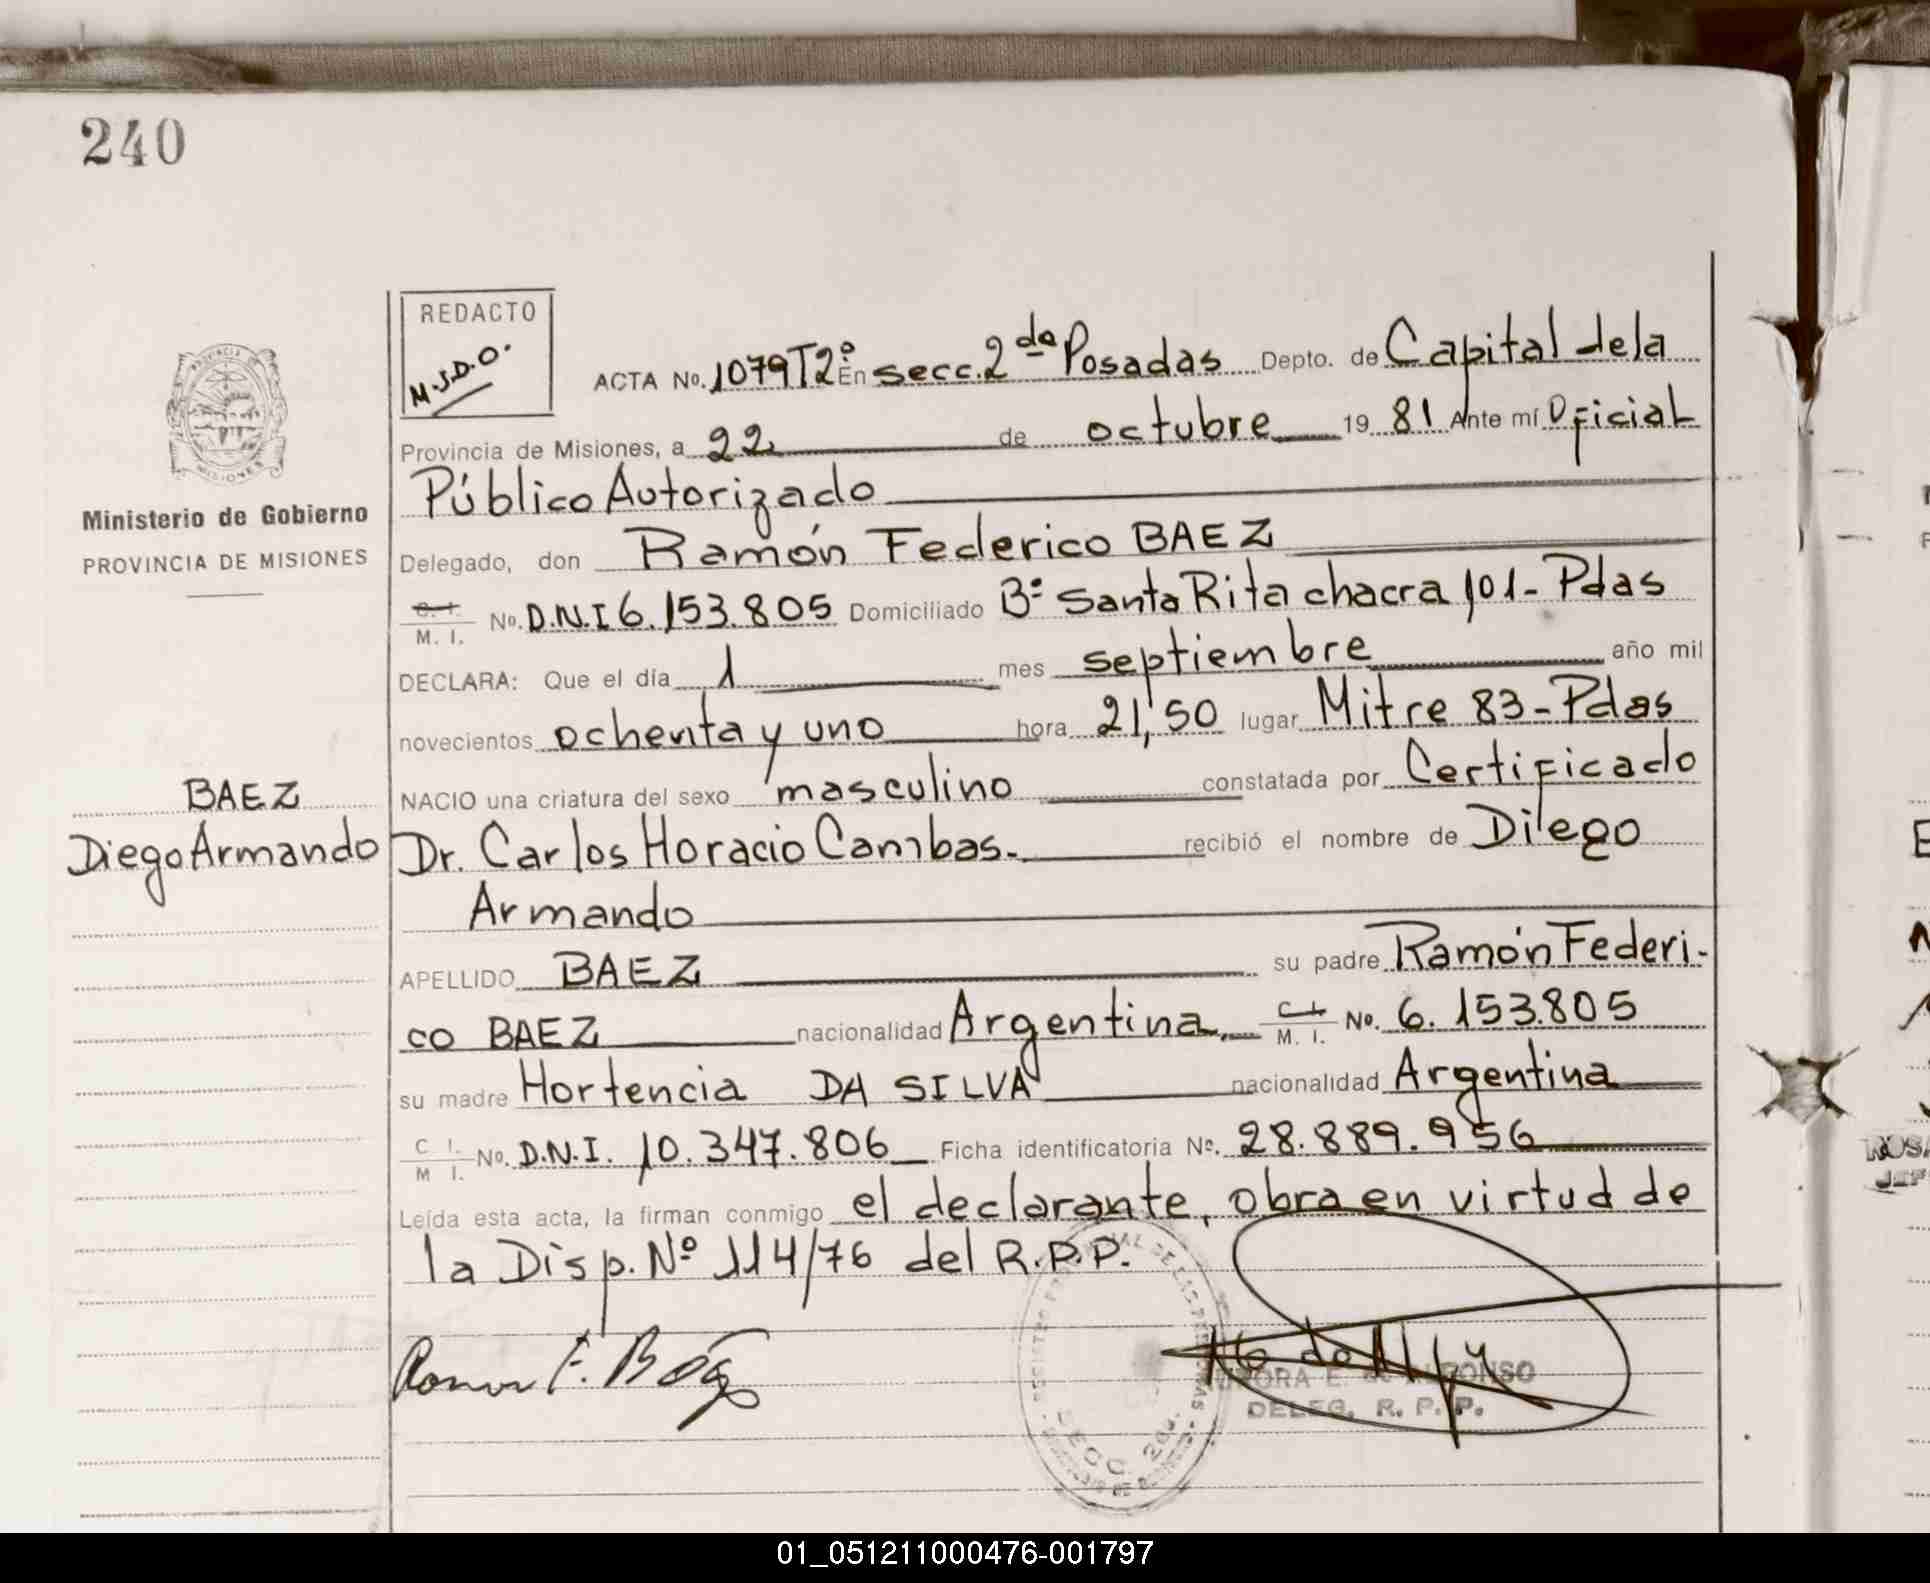 240
REDACTO
M.J.D.O.
ACTA No. 1079 T2º En secc. 2da Posadas Depto. de Capital de la
Provincia de Misiones, a 22 de octubre 19 81 Ante mí Oficial
Público Autorizado
Ministerio de Gobierno
PROVINCIA DE MISIONES
Delegado, don Ramón Federico BAEZ
C. I.
M. I. No. D.N.I 6.153.805 Domiciliado Bº Santa Rita chacra 101 - Pdas
DECLARA: Que el día 1 mes septiembre año mil
novecientos ochenta y uno hora 21,50 lugar Mitre 83 - Pdas
BAEZ
Diego Armando
NACIO una criatura del sexo masculino constatada por Certificado
Dr. Carlos Horacio Cambas. recibió el nombre de Diego
Armando
APELLIDO BAEZ su padre Ramón Federi-
co BAEZ nacionalidad Argentina. C. I.
M. I. No. 6.153.805
su madre Hortencia DA SILVA nacionalidad Argentina
C I.
M I. No. D.N.I. 10.347.806 Ficha identificatoria Nº. 28.889.956
Leída esta acta, la firman conmigo el declarante, obra en virtud de
la Disp. Nº 114/76 del R.P.P.
Ramon F. Báez
DELEG. R. P. P.
SECC. 2da.
01_051211000476-001797